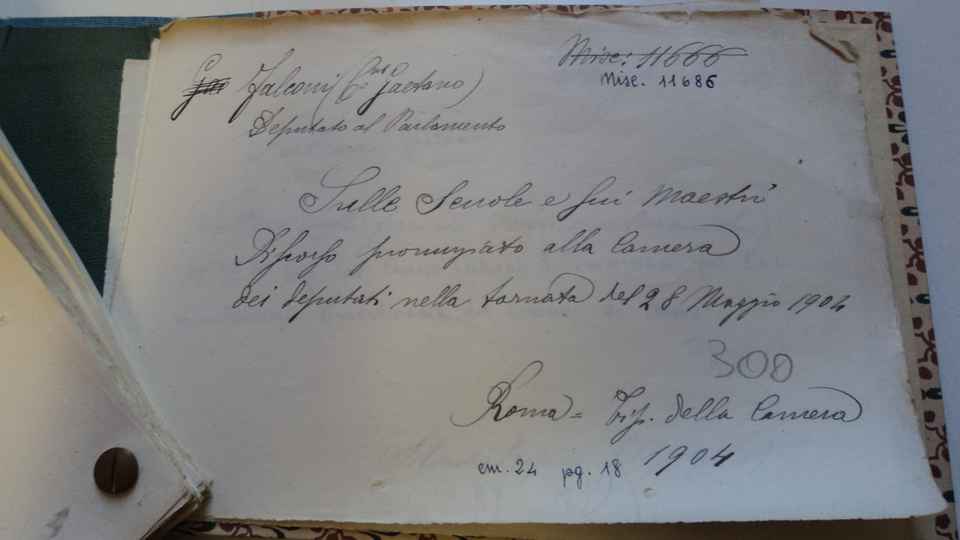 Misc: 11666
Falconi (Gaetano)
Misc. 11686
Deputato al Parlamento
Sulle Scuole e sui Maestri
Discorso pronunziato alla Camera
dei deputati nella tornata del 28 Maggio 1904
300
Roma = Tip. della Camera
1904
cm. 24 pg. 18